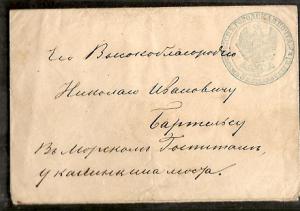 Его Высокоблагородію
Николаю Ивановичу
Бартельсу
Въ Морскомъ Госпиталѣ,
у калинкина моста.